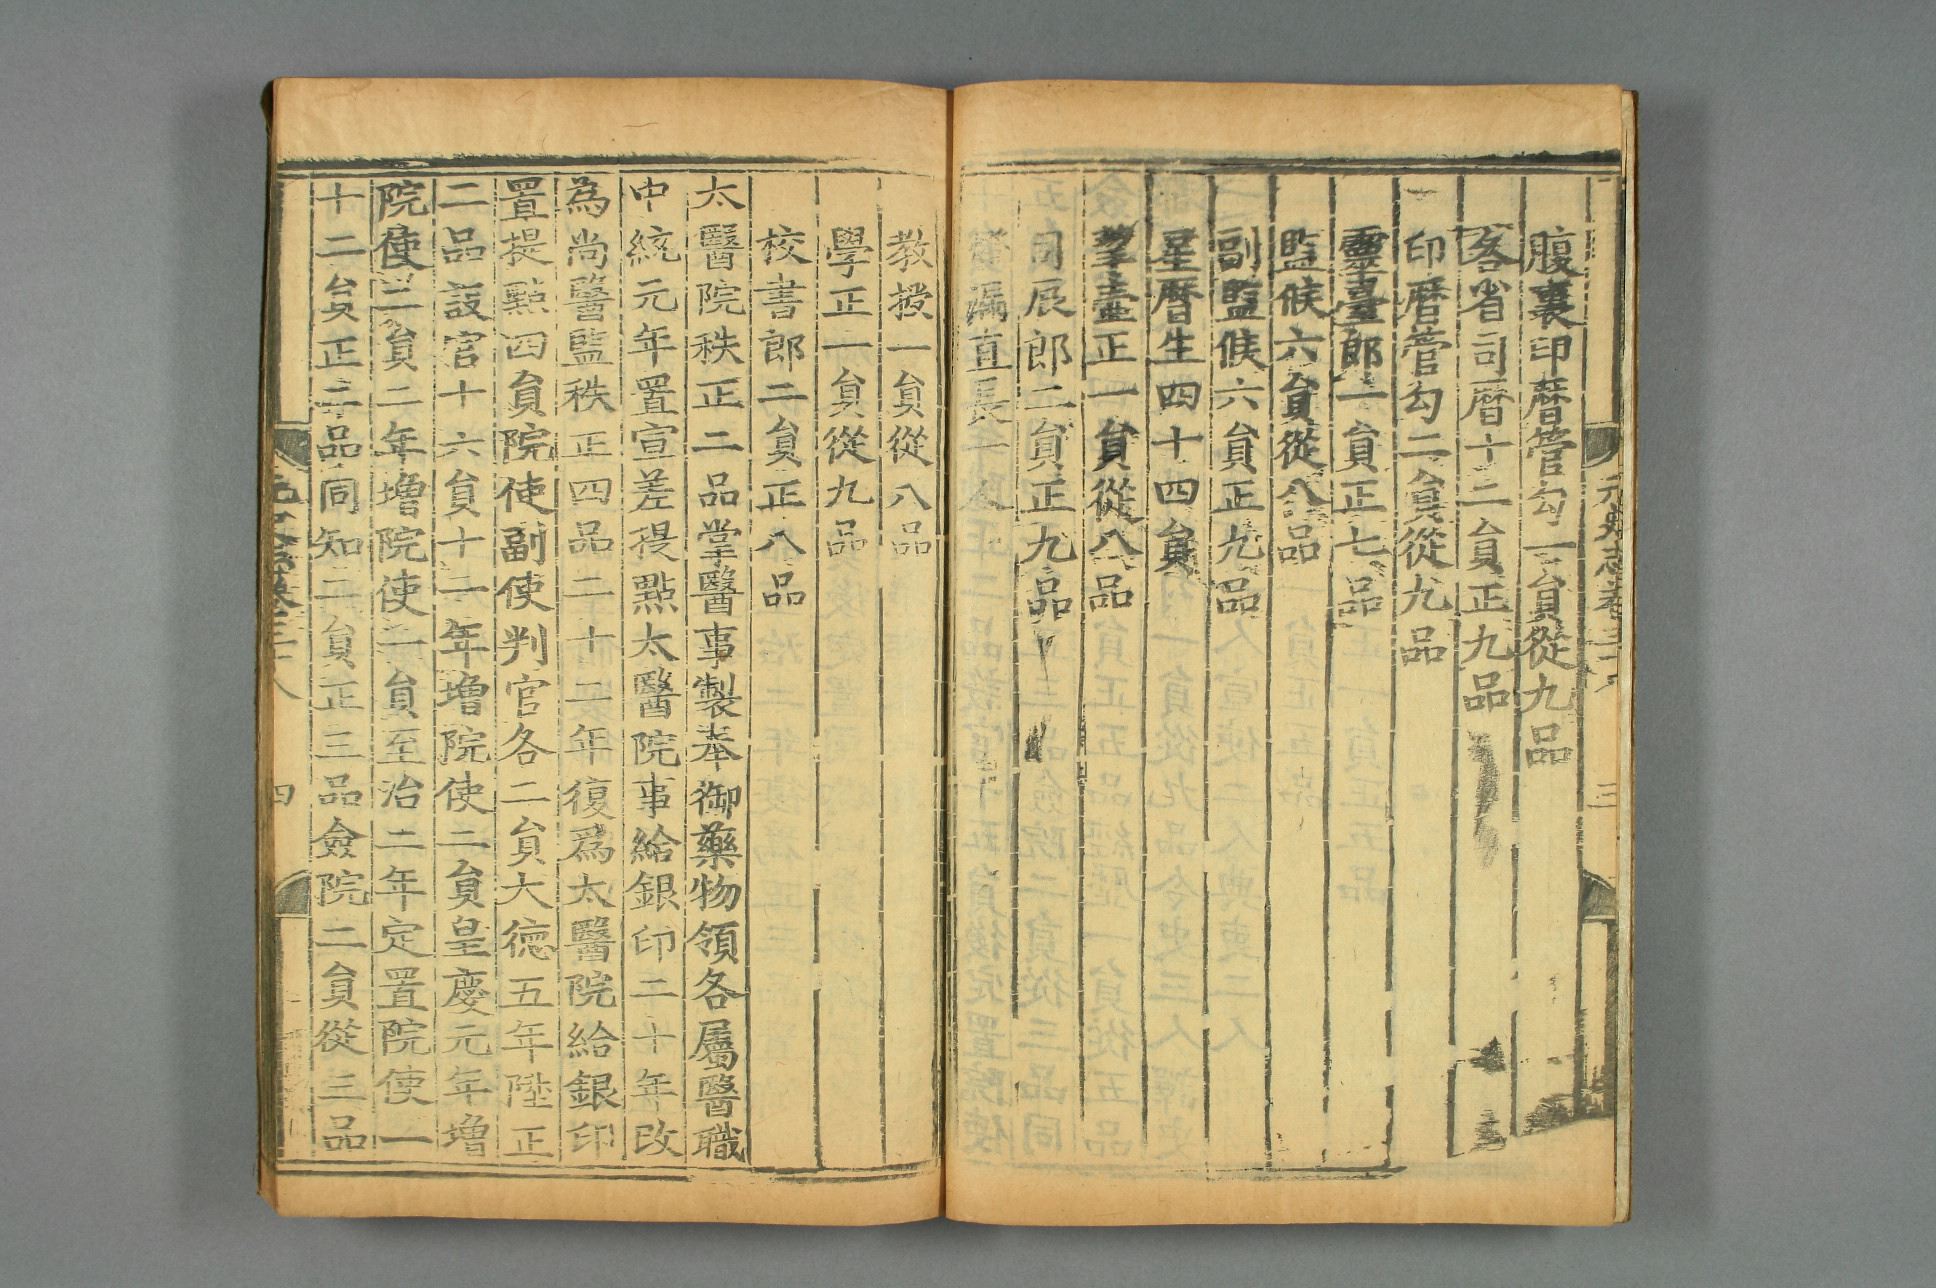 元史志卷三十八 三
腹裏印曆管勾一員從九品
各省司曆十二員正九品
印曆管勾二員從九品
靈臺郎一員正七品
監候六員從八品
副監候六員正九品
星曆生四十四員
挈壺正一員從八品
司辰郎二員正九品
漏直長一人
教授一員從八品
學正一員從九品
校書郎二員正八品
太醫院秩正二品掌醫事製奉御藥物領各屬醫職
中統元年置宣差提點太醫院事給銀印二十年改
為尚醫監秩正四品二十二年復爲太醫院給銀印
置提點四員院使副使判官各二員大德五年陞正
二品設官十六員十一年增院使二員皇慶元年增
院使二員二年增院使一員至治二年定置院使一
十二員正二品同知二員正三品僉院二員從三品
四